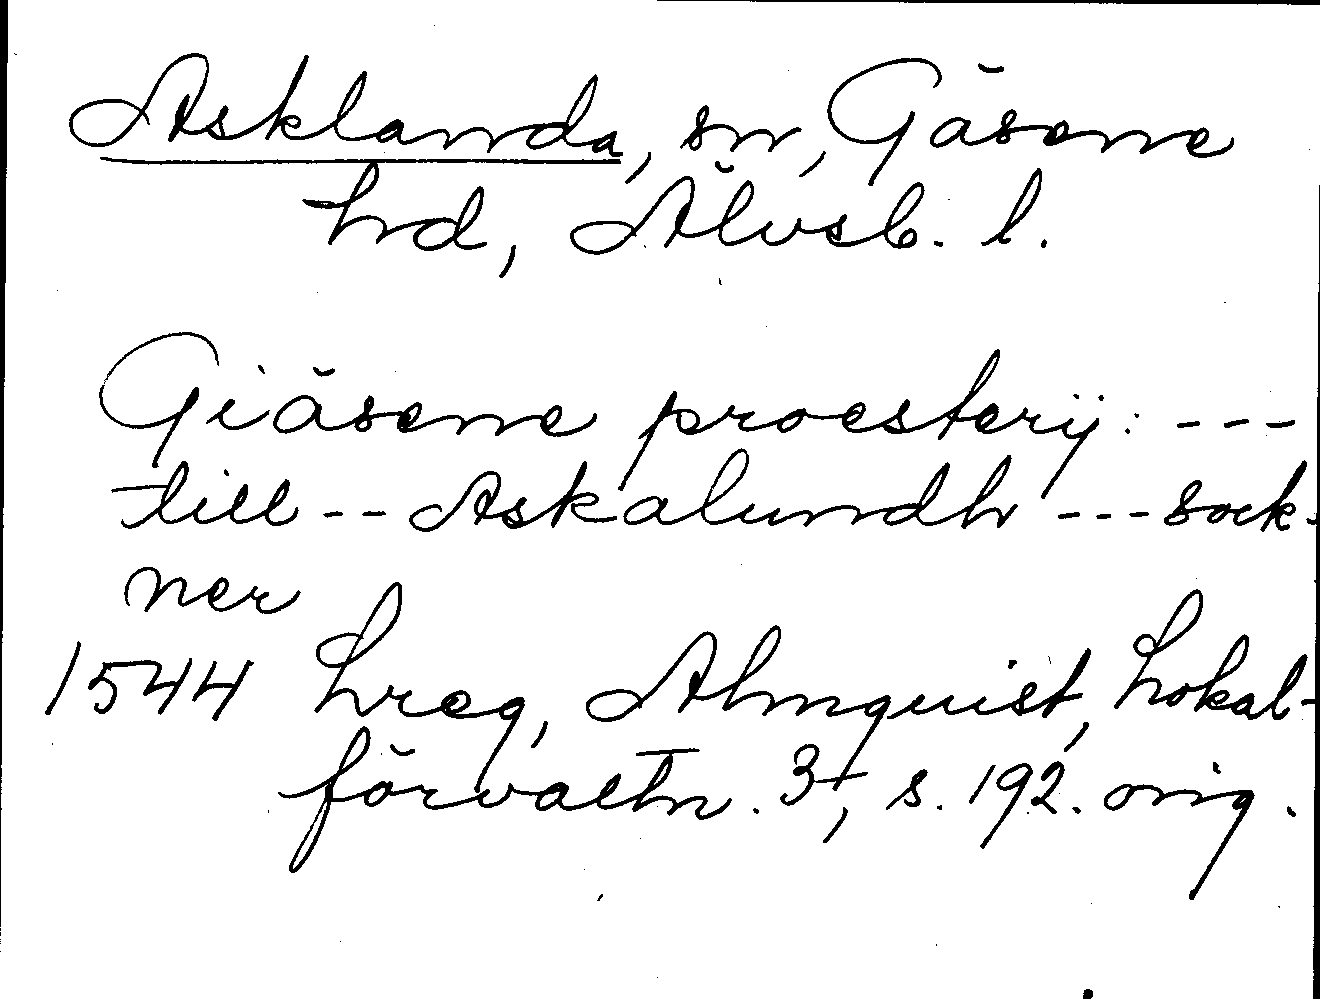 Asklanda, sn, Gäsene
hd, Älvsb. l.
Giäsene proesterij: ---
till -- Askalundh --- sock-
ner
1544 Lreg, Almquist, Lokal-
förvaltn. 3, s. 192. orig.